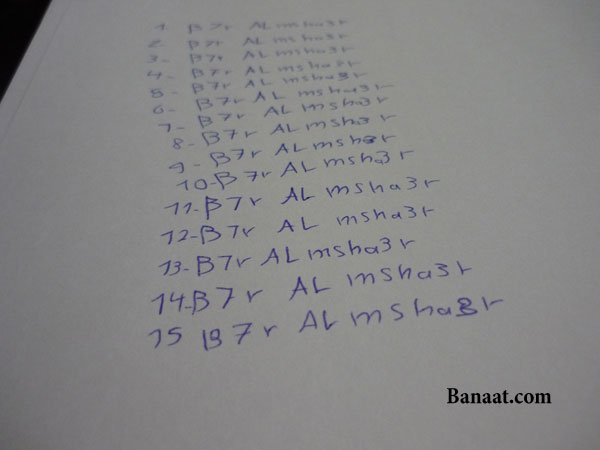 1. B7r AL msha3r
2. B7r AL msha3r
3- B7r AL msha3r
4- B7r AL msha3r
5- B7r AL msha3r
6- B7r AL msha3r
7- B7r AL msha3r
8- B7r AL msha3r
9- B7r AL msha3r
10-B7r AL msha3r
11-B7r AL msha3r
12-B7r AL msha3r
13-B7r AL msha3r
14-B7r AL msha3r
15 B7r AL msha3r
Banaat.com